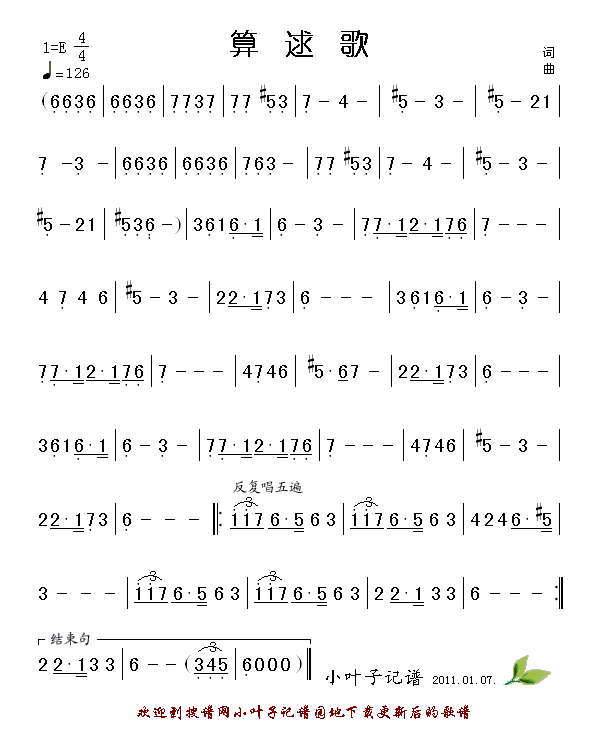 算逑歌
1=E 4/4
♩=126
词
曲
(6636|6636|7737|77 #53|7-4-|#5-3-|#5-21
7 -3 -|6636|6636|763-|77 #53|7-4-|#5-3-
#5-21|#536-)|3616·1|6-3-|77·12·176|7---|
4 7 4 6|#5-3-|22·173|6---|3616·1|6-3-|
77·12·176|7---|4746|#5·67-|22·173|6---
3616·1|6-3-|77·12·176|7---|4746|#5-3-
反复唱五遍
22·173|6---‖:117 6·5 6 3|117 6·5 6 3|4246·#5|
3---|117 6·5 6 3|117 6·5 6 3|2 2·1 3 3|6---:‖
结束句
2 2·1 3 3|6--(345|6000)‖
小叶子记谱 2011.01.07.
欢迎到搜谱网小叶子记谱园地下载更新后的歌谱